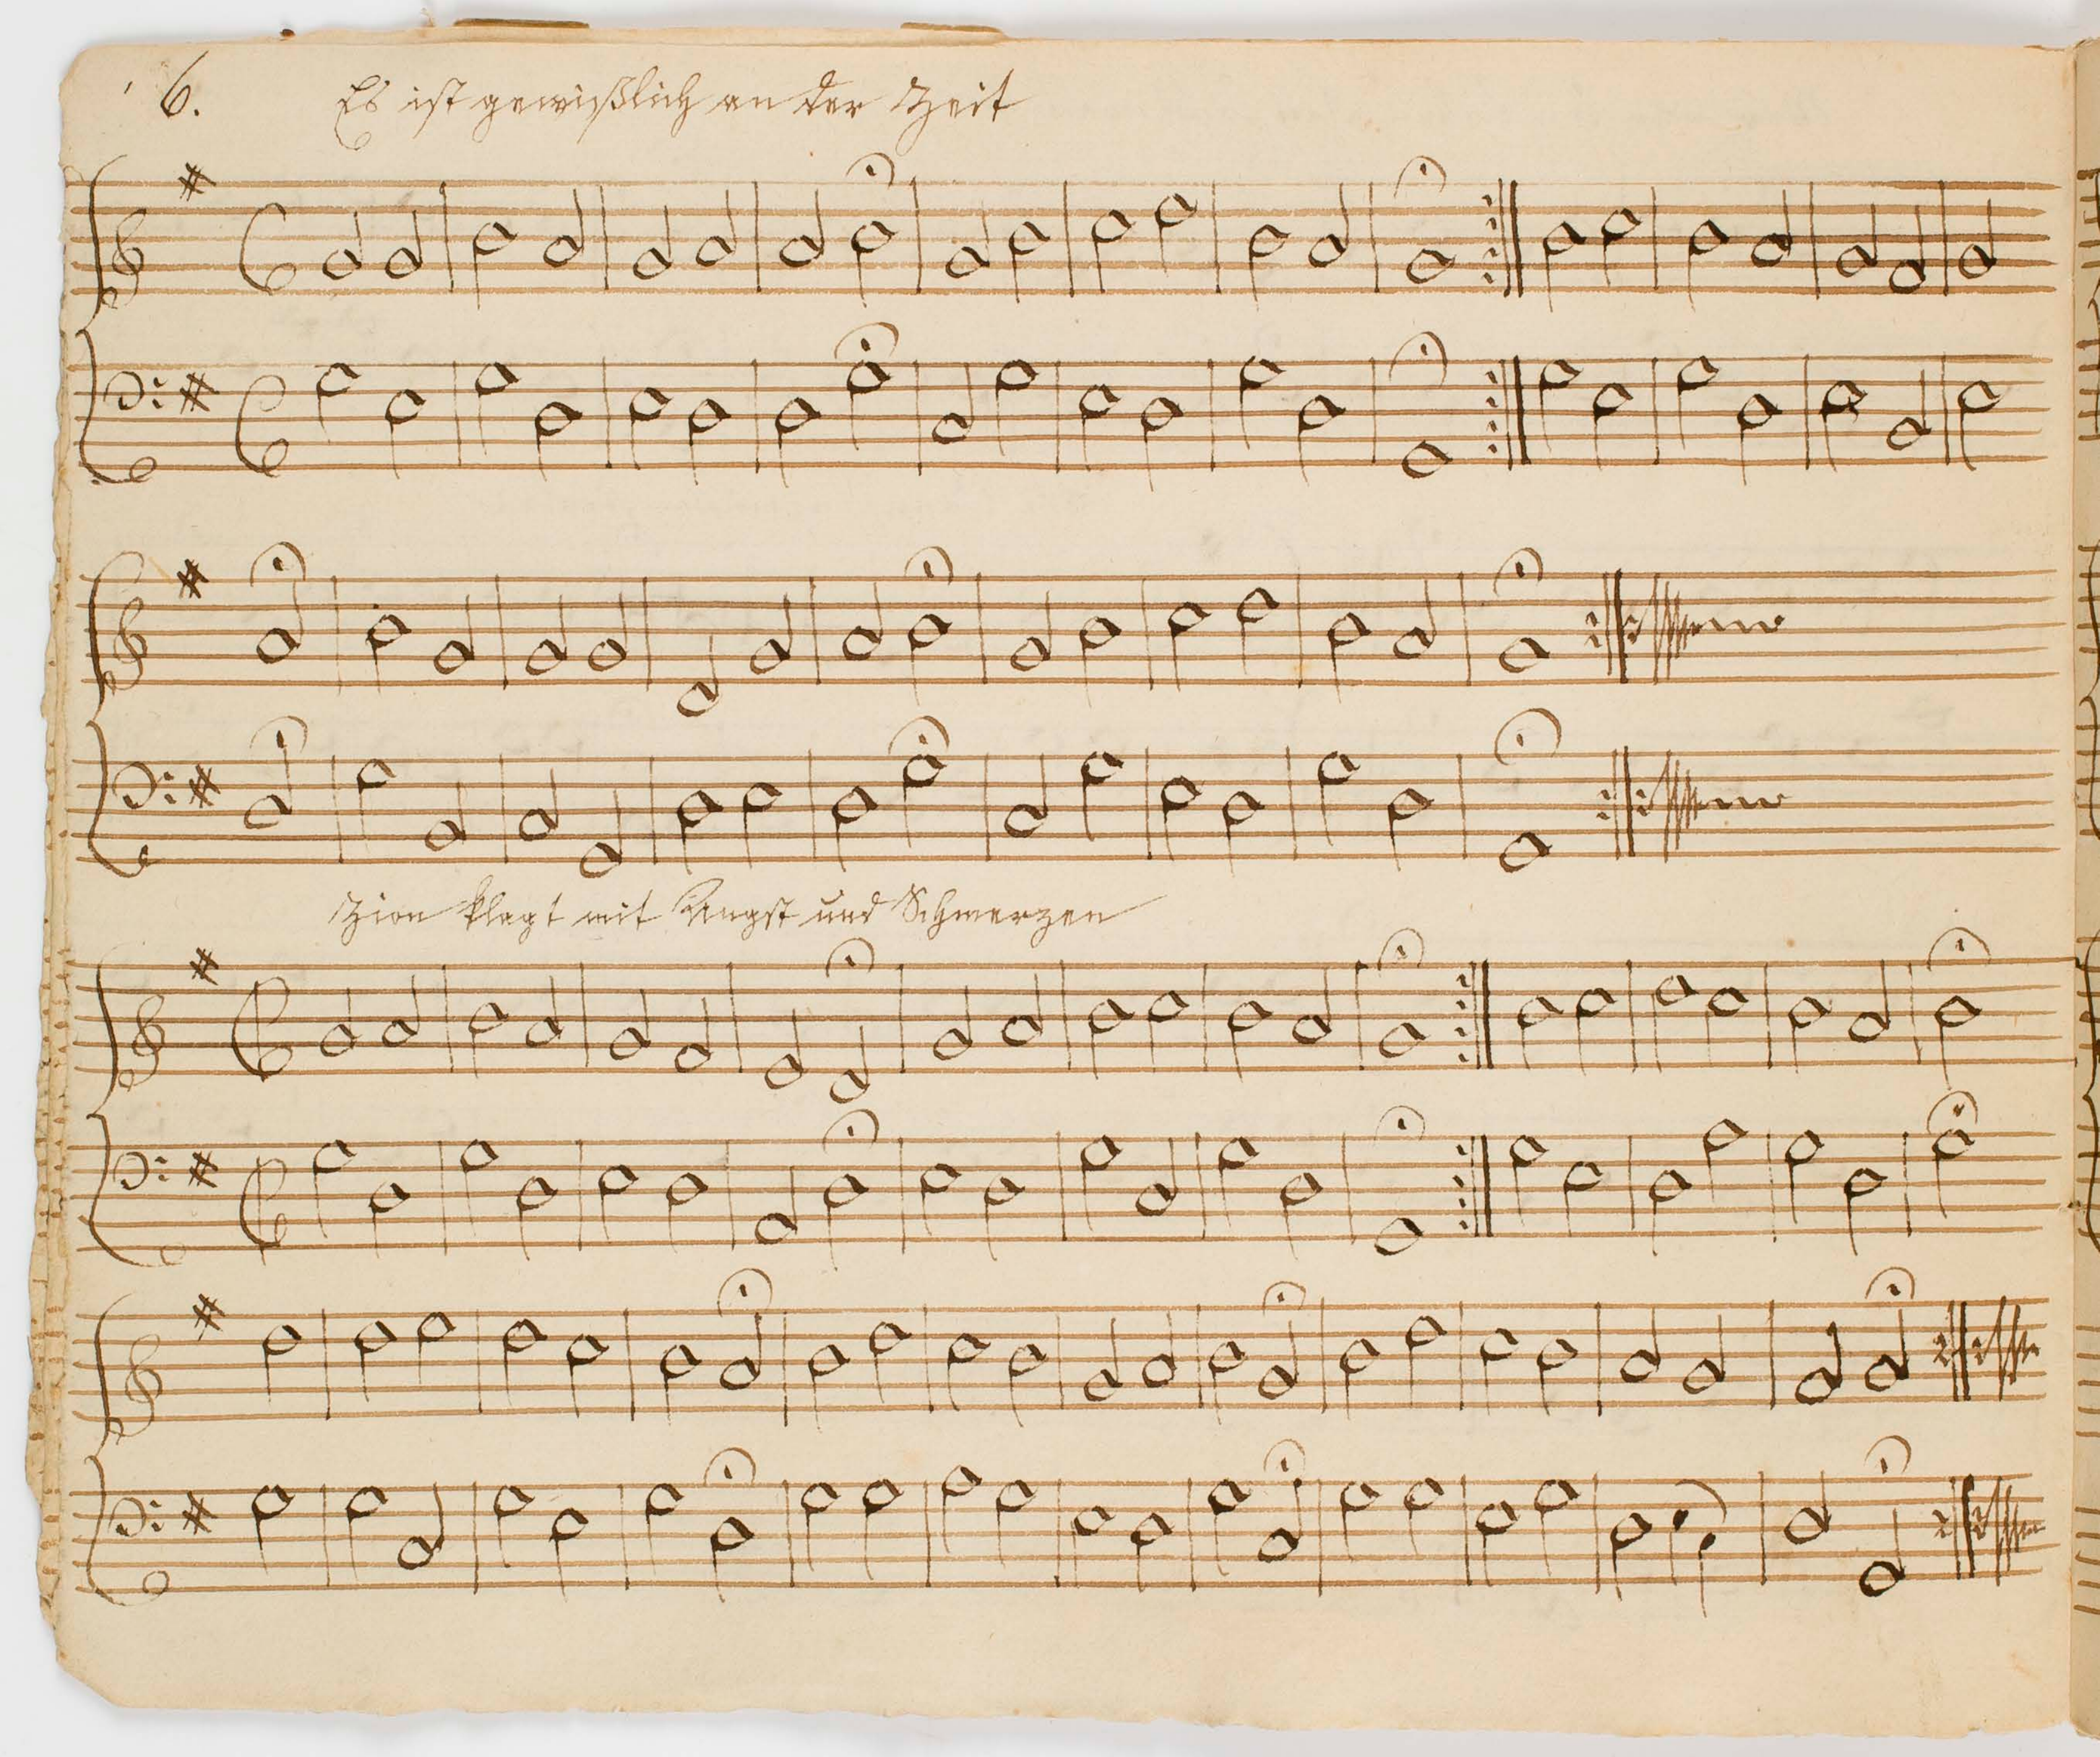 6.
Es ist gewißlich an der Zeit
Zion klagt mit Angst und Schmerzen